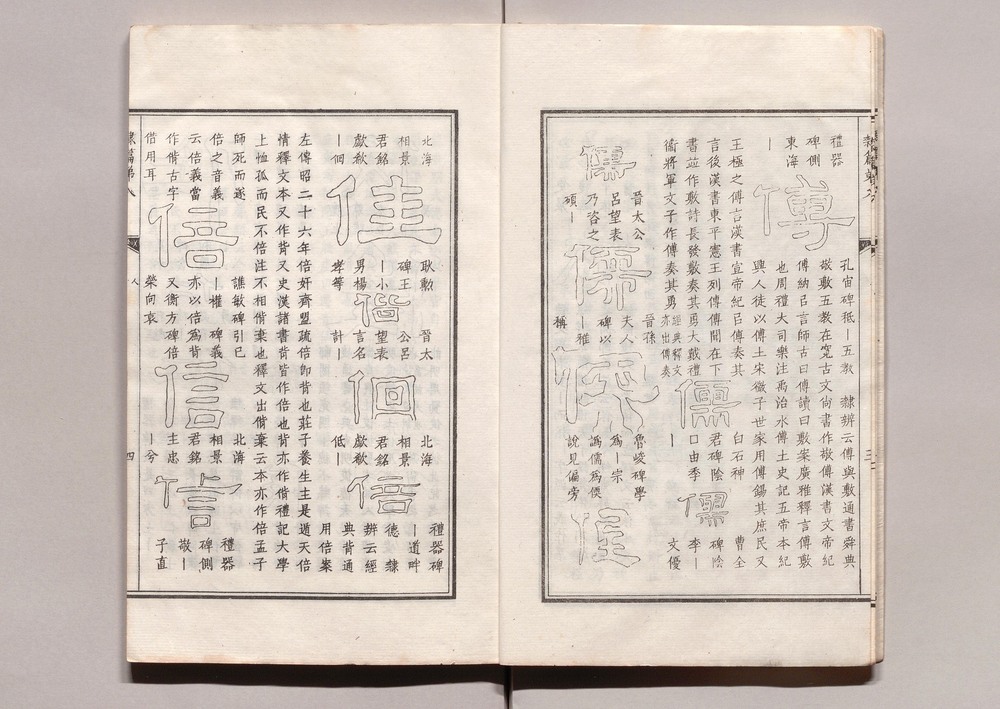 禮器
碑側
東海
｜
傅
孔宙碑祗｜五教　隸辨云傅與敷通書舜典
敬敷五教在寬古文尚書作敬傅漢書文帝紀
傅納㠯言師古曰傅讀曰敷案廣雅釋言傅敷
也周禮大司樂注禹治水傅土史記五帝本紀
興人徒以傅土宋微子世家用傅錫其庶民又
王極之傅言漢書宣帝紀㠯傅奏其
言後漢書東平憲王列傳傅聞在下
書竝作敷詩長發敷奏其勇大戴禮
衞將軍文子作傅奏其勇
經典釋文
亦出傅奏
儒
白石神
君碑陰
口由季
｜
儒
曹全
碑陰
李｜
文優
儒
晉太公
呂望表
乃咨之
碩｜
儒
晉孫
夫人
碑以
｜雅
稱
魯峻碑學
爲｜宗
譌儒爲
說見偏旁
北海
相景
君銘
歔欷
｜佪
佳
耿勳
碑王
｜小
男楊
孝等
偕
晉太
公呂
望表
言名
計｜
佪
北海
相景
君銘
歔欷
低｜
倍
禮器碑
｜道畔
德　隸
辨云經
典背通
用倍案
左傳昭二十六年倍奸齊盟疏倍卽背也莊子養生主是遁天倍
情釋文本又作背又史漢諸書背皆作倍也背亦作偝禮記大學
上恤孤而民不倍注不相偝棄也釋文出偝棄云本亦作倍孟子
師死而遂
倍之音義
云倍義當
作偝古字
借用耳
倍
譙敏碑引已
｜權　碑義
亦以倍爲背
又衡方碑倍
榮向哀
信
北海
相景
君銘
主忠
｜兮
信
禮器
碑側
敬｜
子直